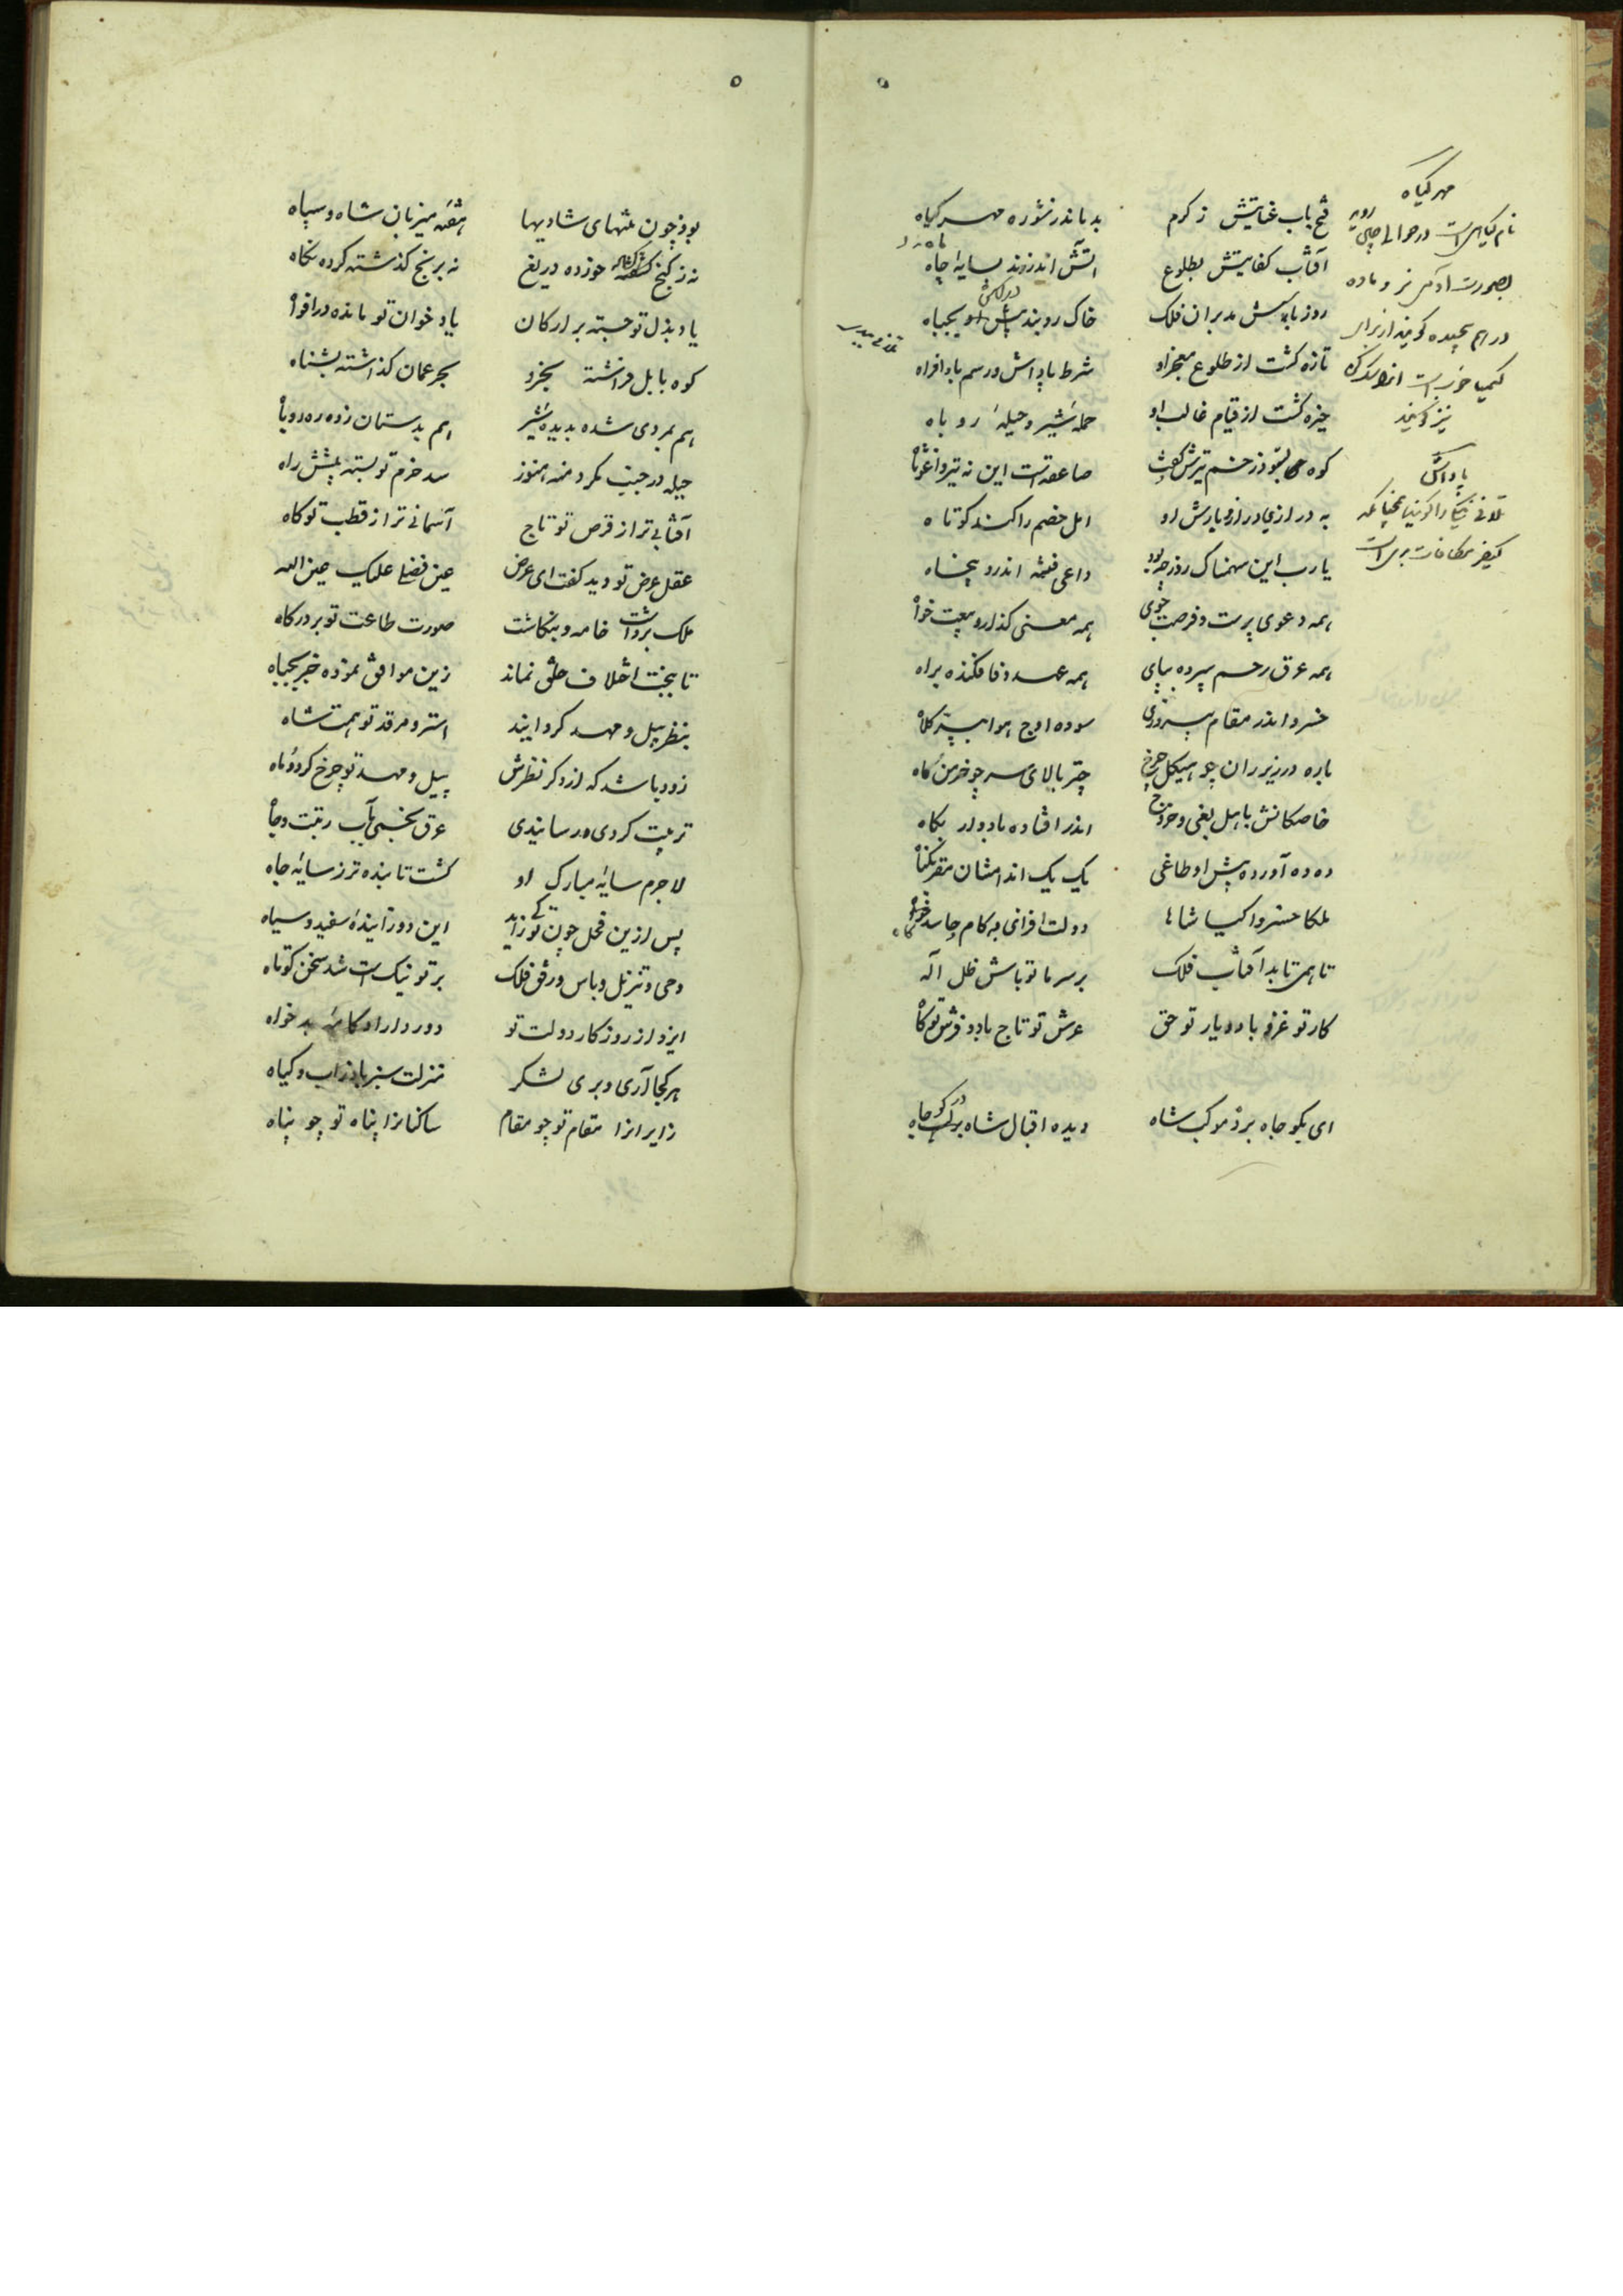 ۵
فتح باب عنایتش ز کرم بدماند ز شوره مهر گیاه
آفتاب کفایتش بطلوع آتش اندر زند بسایهٔ چاه
روز باسش مدبران فلک خاک روبند پیش او بجباه
تازه گشت از طلوع معجز او شرط پاداش و رسم بادافراه
خیره گشت از قیام غالب او حملهٔ شیر و حیلهٔ روباه
کوه بشنود زخم تیرش گفت صاعقه است این نه تیر واغوثاه
به درازی در آز و یازش او امل خصم را کند کوتاه
یا رب این سهمناک روز چه بود داعی فتنه اندرو پنجاه
همه دعوی پرست و فرصت جوی همه معنی گذار و بیعت خواه
همه عرق رحم سپرده بپای همه عهد وفا فکنده براه
خسرو اندر مقام پیروزی سوده اوج هوا بپر کلاه
باره در زیر ران چو هیکل چرخ چتر بالای سر چو خرمن ماه
خاصگانش باهل بغی و خروج اندر افتاده باد وار بکاه
ده ده آورده پیش او طاغی یک یک اندامشان مقر بگناه
ملکا خسروا کیا شاها دولت افزای و کام حاسد کاه
تا همی تابد آفتاب فلک بر سر ما تو باش ظل اله
کار تو غزو باد و یار تو حق عرش تو تاج باد و فرش تو گاه
ای بکو جاه برده موکب شاه دیده اقبال شاه برگ جاه
مهر گیاه
نام گیاهی است در حوالی چین روید
بصورت آدمی نر و ماده
در هم پیچیده گویند از برای
نیز گویند
پاداش
تلافی نیکی را گویند چنانکه
کیفر مکافات بدی است
۵
بود چون میهای شادیها هفته میزبان شاه و سپاه
نه ز گنج خورده دریغ نه برنج گذشته کرده نگاه
یاد بذل تو جسته بر ارکان یاد خوان تو مانده در افواه
کوه بابل فراشته بخرد بحر عمان گذاشته بشناه
هم بمردی شده بدیدهٔ شیر هم بدستان زده ره روباه
حیله در جیب مکر دمنه هنوز سد حزم تو بسته پیشش راه
آفتابی تر از قرص تو تاج آسمانی تر از قطب تو گاه
عقل عرض تو دید گفت ای عرض عین فضی علیک عین الله
ملک برداشت خامه و بنگاشت صورت طاعت تو بر درگاه
تا بجنت اختلاف خلق نماند زین موافق نموده خبر بجباه
بنظر پیل و مهد کرد آیند استر و مرقد تو همت شاه
زود باشد که از دگر نظرش پیل و مهد تو چرخ گردد و ماه
تربیت کردی و رسانیدی عرق بخسی بآب رتبت و جاه
لاجرم سایهٔ مبارک او گشت تابنده تر ز سایهٔ جاه
پس ازین فحل چون تو کی زاید این دو زایندهٔ سفید و سیاه
وحی و تنزیل و باس و رفق فلک بر تو نیک است شد سخن کوتاه
ایزد از روزگار دولت تو دور داراد کامهٔ بدخواه
هر کجا آری و بری لشکر منزلت سبز باد ز آب و گیاه
زایرانرا مقام تو چو مقام ساکنانرا پناه تو چو پناه